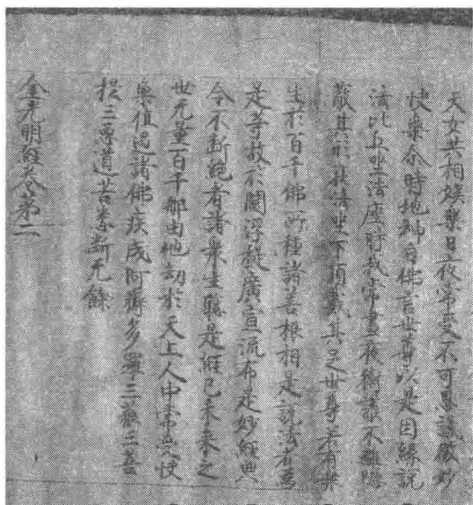 天女共相娛樂日夜常受不可思議微妙
快樂尒時地神白佛言世尊以是因緣說
法比丘坐法座時我常晝夜衛護不離隱
蔽其形於法坐下頂戴其足世尊若有衆
生於百千佛所種諸善根相是說法者爲
是等故於閻浮提廣宣流布是妙經典
令不斷絕者諸衆生聽是經已未來之
世无量百千那由他劫於天上人中常受快
樂值遇諸佛疾成阿耨多羅三藐三菩
提三㙯道苦悉斷无餘
金光明經卷第二